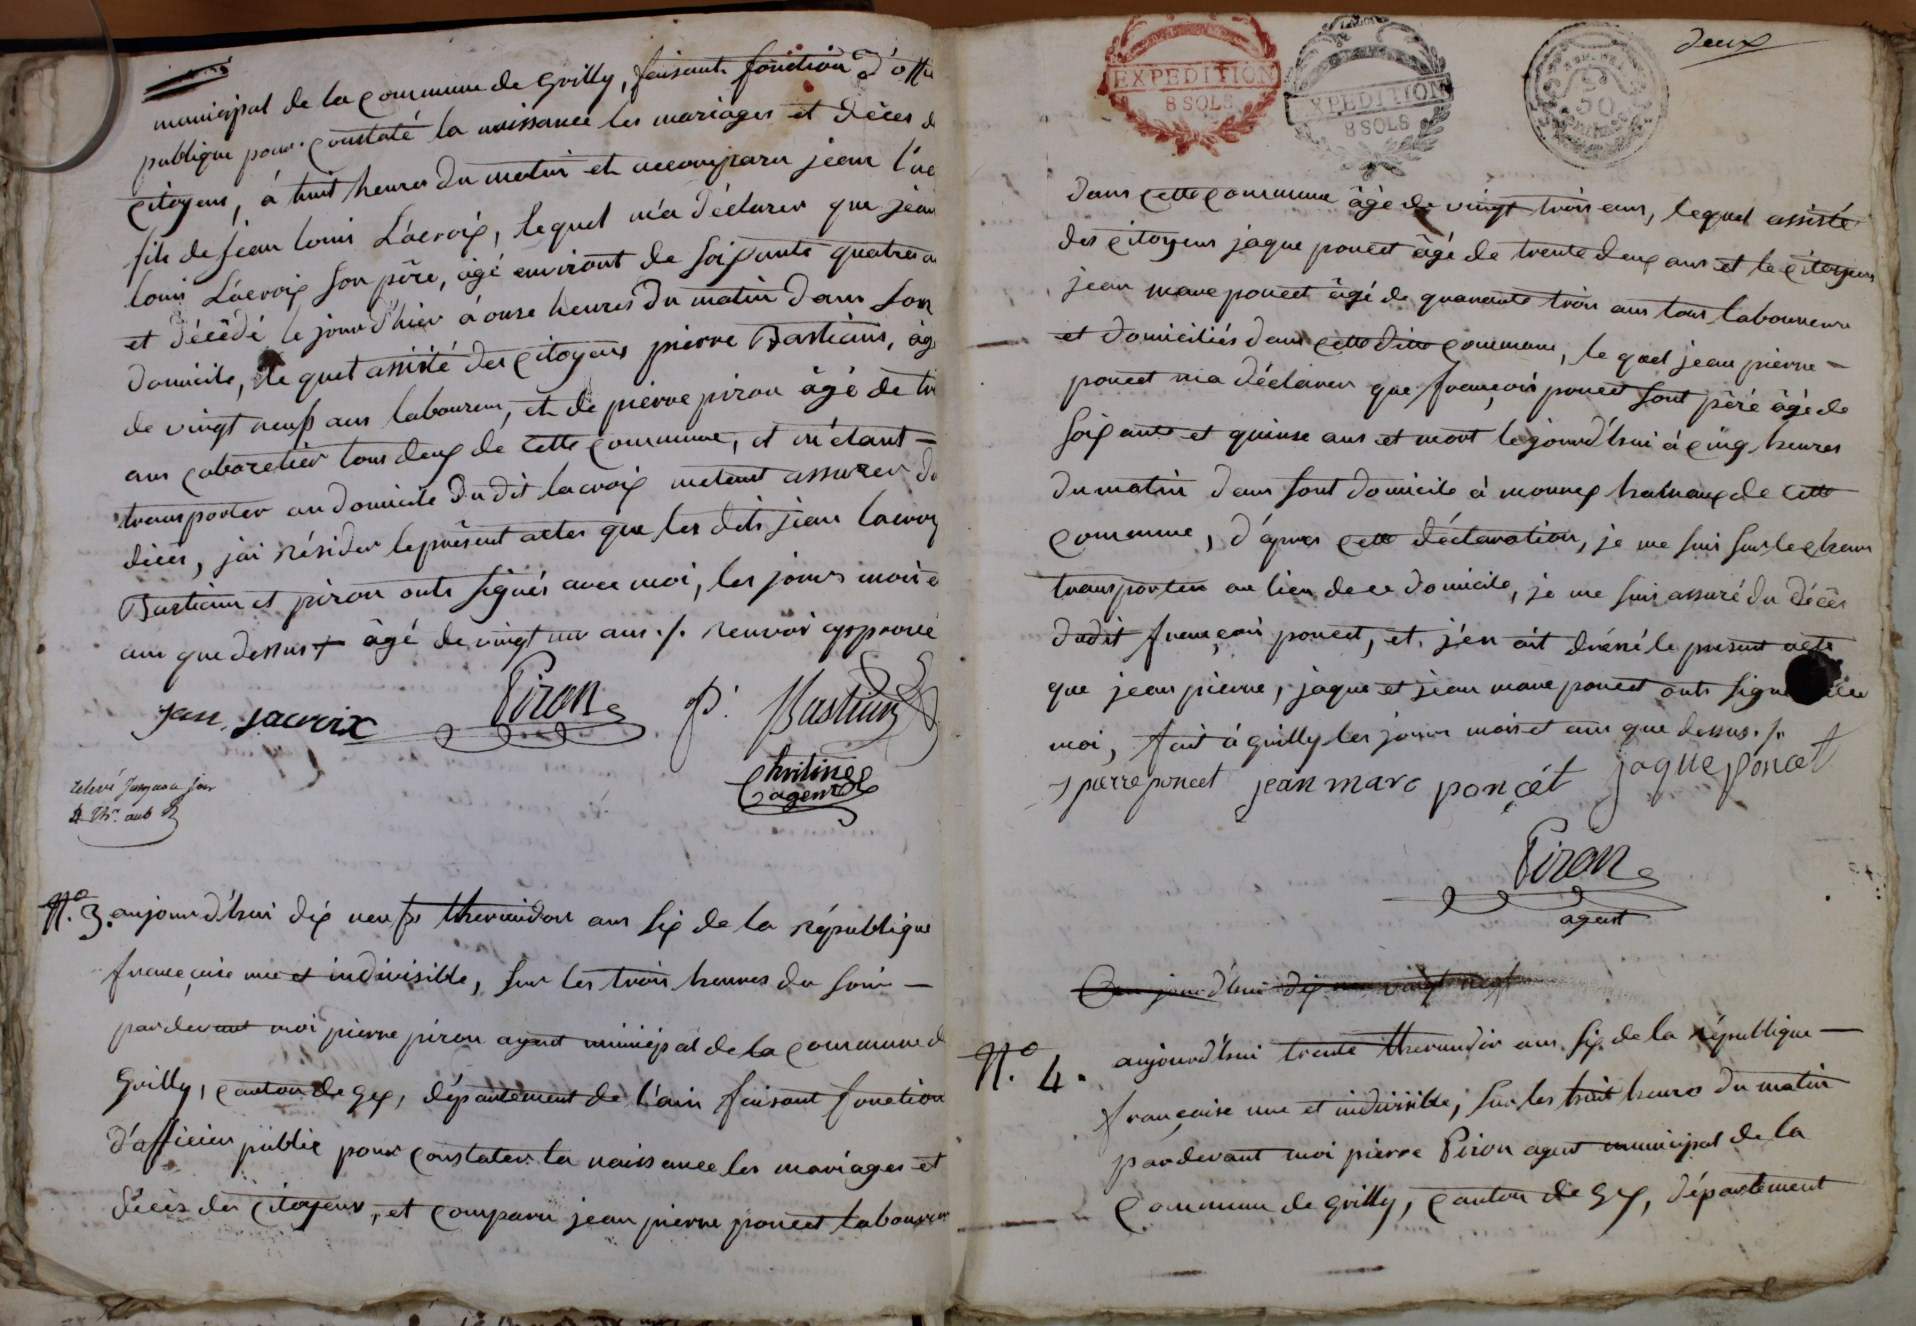 municipal de la commune de Grilly, faisant fonction d'offi
publique pour constaté la naissance les mariages et déces d
citoyens, à huit heures du matin et accomparu jean l'ac
fils de jean louis Lácroix, lequel m'a déclarer que jean
louis Lácroix son père, âgé environt de soixante quatre a
et décédé le jourd'hier à onse heures du matin dans son
domicile, le quel assisté des citoyens pierre Bastians, âg
de vingt neuf ans laboureur, et de pierre piron âgé de tr
ans cabaretier tous deux de cette commune, et m'étant
transporter au domicile du dit lacroix metant assurer du
dices, jai résider le présent actes que les dits jean lacroix
Bastian et piron onts signés avec moi, les jours mois e
ans que dessus + âgé de vingt un ans ./. renvoi approuvé
jean jacroix Piron P. Bastian
Christine
agent
relevé jusqua ce jour
N.º 3. aujourd'hui dix neuf thermidor ans six de la république
françaisse une et indivisible, sur les trois heures du soir
pardevant moi pierre piron agent municipal de la commune d
Grilly, canton de gex, département de l'ain faisant fonction
d'officier public pour constater la naissance les mariages et
déces des citoyens, et comparu jean pierre poncet laboureur
deux
EXPEDITION
8 SOLS
EXPEDITION
8 SOLS
50
dans cette commune âgé de vingt trois ans, lequel assisté
des citoyens jaque poncet âgé de trente deux ans et le citoyens
jean marc poncet âgé de quarante trois ans tous laboureurs
et domiciliés dans cette dite commune, le quel jean pierre
poncet ma déclarer que françois poncet sont père âgé de
soixante et quinse ans et mort le jourd'hui à cinq heures
du matin dans sont domicile à mourex hamaux de cette
commune, d'après cette déclaration, je me suis sur le cham
transporter au lieu de ce domicile, je me suis assuré du décès
dudit françois poncet, et j'en ait dréssé le présent acte
que jean pierre, jaque et jean marc poncet onts signé
moi, fait à grilly les jours mois et ans que dessus ./.
j pierre poncet jean marc poncét jaque poncet
Piron
agent
aujourd'hui dix vingt neuf
N.º 4. aujourd'hui trente thermidor ans six de la république
française une et indivisible, sur les huit heures du matin
pardevant moi pierre Piron agent municipal de la
commune de Grilly, canton de gex, département